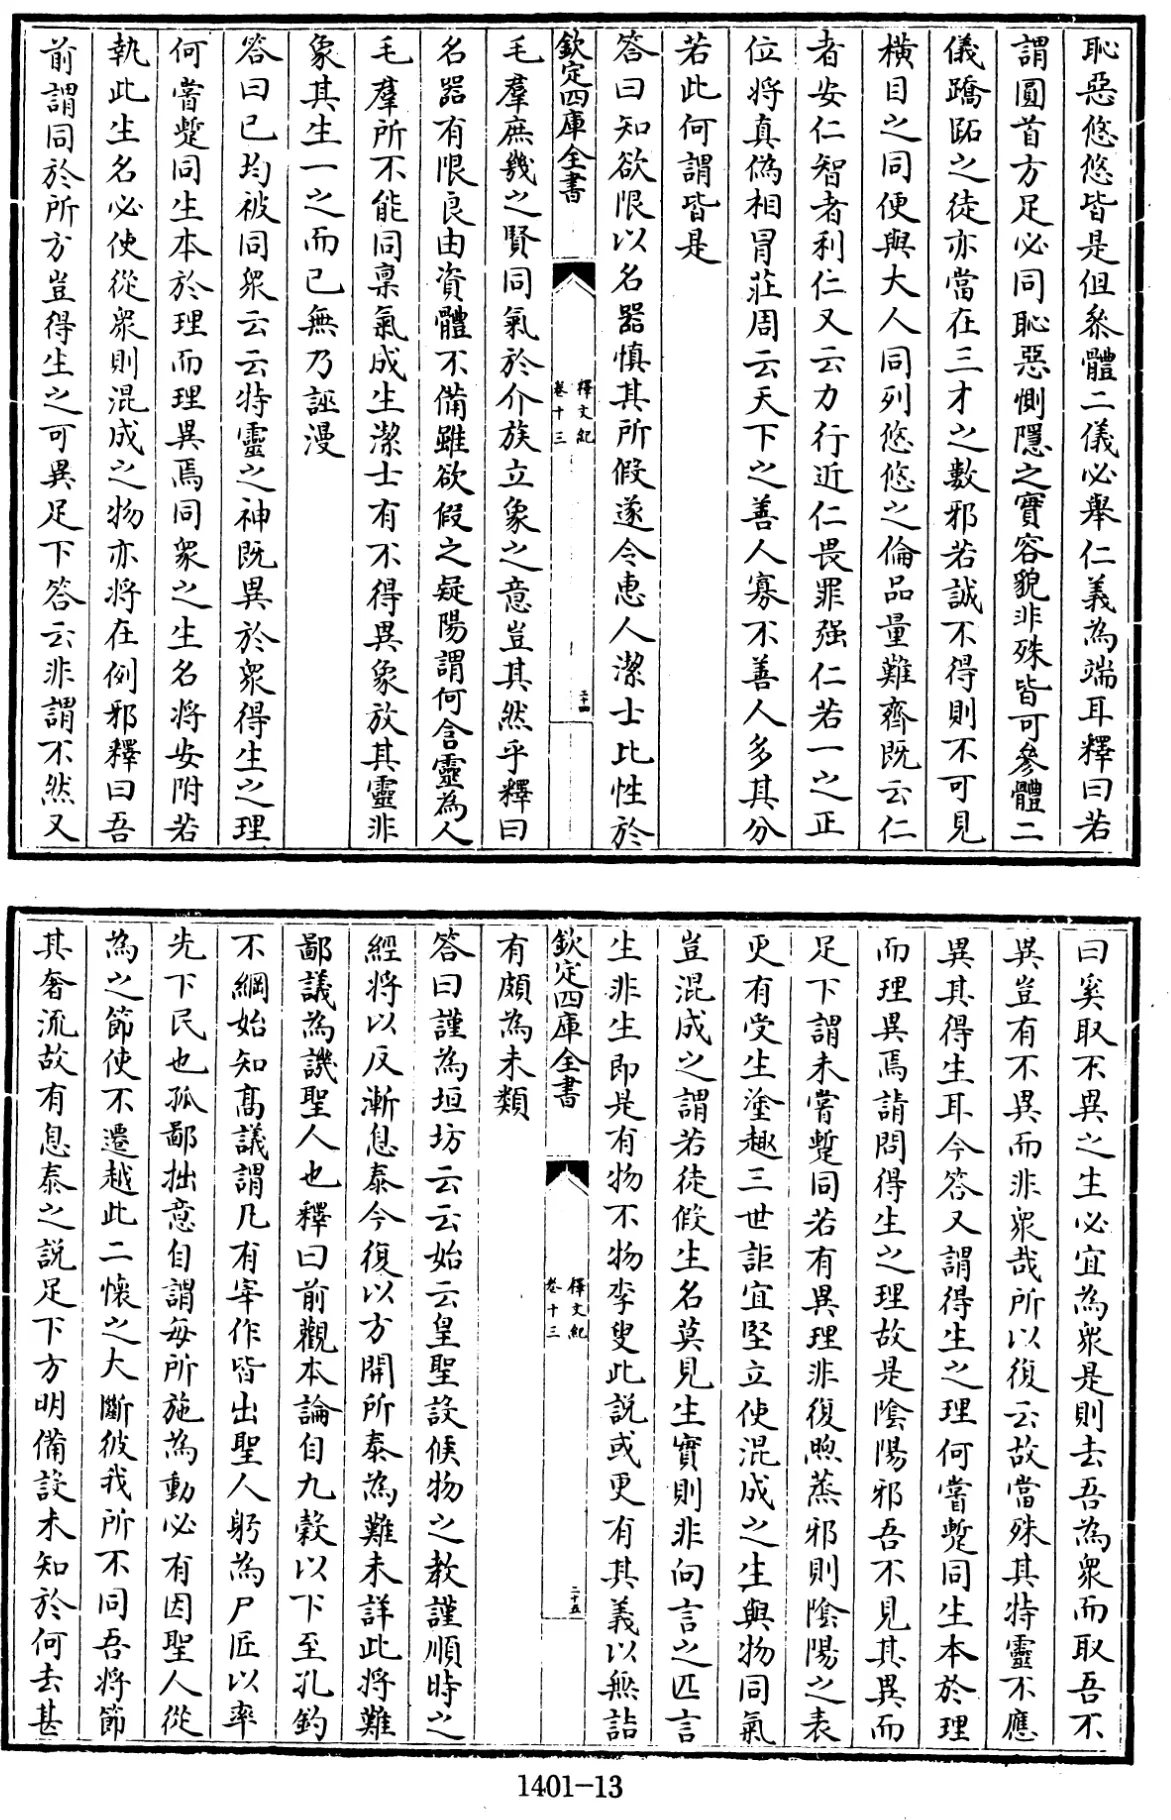 恥惡悠悠皆是但叅體二儀必舉仁義為端耳釋曰若
謂圓首方足必同恥惡惻隱之實容貌非殊皆可參體二
儀蹻跖之徒亦當在三才之數邪若誠不得則不可見
橫目之同便與大人同列悠悠之倫品量難齊既云仁
者安仁智者利仁又云力行近仁畏罪强仁若一之正
位將真偽相冒莊周云天下之善人寡不善人多其分
若此何謂皆是
答曰知欲限以名器慎其所假遂令惠人潔士比性於
欽定四庫全書
釋文紀
卷十三
二十四
毛羣庶幾之賢同氣於介族立象之意豈其然乎釋曰
名器有限良由資體不備雖欲假之疑陽謂何含靈為人
毛羣所不能同稟氣成生潔士有不得異象放其靈非
象其生一之而已無乃誣漫
答曰已均被同衆云云特靈之神既異於衆得生之理
何嘗蹔同生本於理而理異焉同衆之生名將安附若
執此生名必使從衆則混成之物亦將在例邪釋曰吾
前謂同於所方豈得生之可異足下答云非謂不然又
曰奚取不異之生必宜為衆是則去吾為衆而取吾不
異豈有不異而非衆哉所以復云故當殊其特靈不應
異其得生耳今答又謂得生之理何嘗蹔同生本於理
而理異焉請問得生之理故是陰陽邪吾不見其異而
足下謂未嘗蹔同若有異理非復煦蒸邪則陰陽之表
更有受生塗趣三世詎宜堅立使混成之生與物同氣
豈混成之謂若徒假生名莫見生實則非向言之匹言
生非生即是有物不物李叟此說或更有其義以無詰
欽定四庫全書
釋文紀
卷十三
二十五
有頗為未類
答曰謹為垣坊云云始云皇聖設候物之教謹順時之
經將以反漸息泰今復以方開所泰為難未詳此將難
鄙議為譏聖人也釋曰前觀本論自九穀以下至孔釣
不綱始知髙議謂凡有宰作皆出聖人躬為尸匠以率
先下民也孤鄙拙意自謂每所施為動必有因聖人從
為之節使不遷越此二懷之大斷彼我所不同吾將節
其奢流故有息泰之説足下方明備設未知於何去甚
1401-13